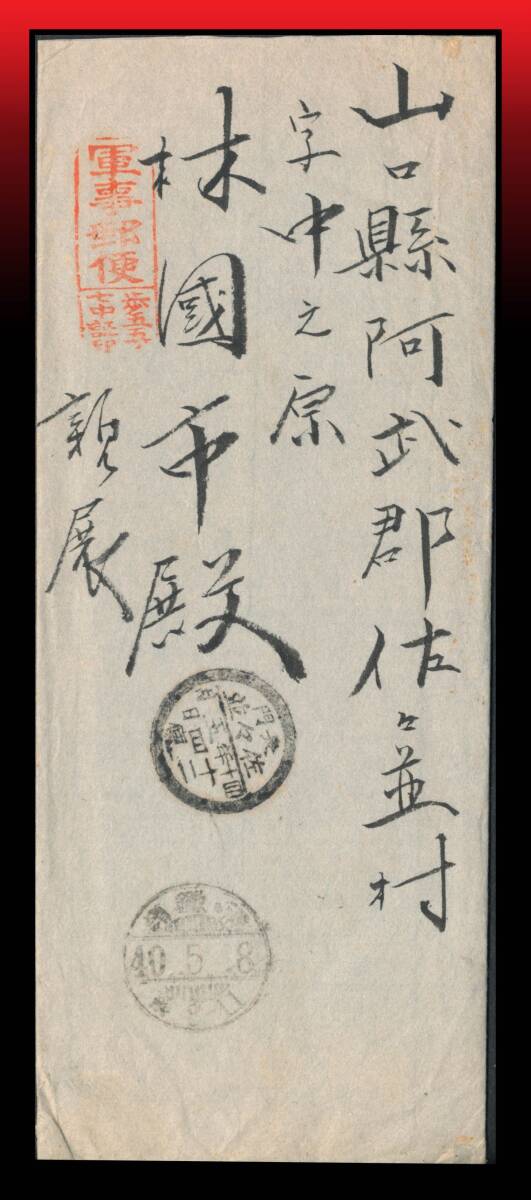 山口縣阿武郡佐々並村
字中之原
林國市殿
親展
軍事郵便
佐々並
40 5 8